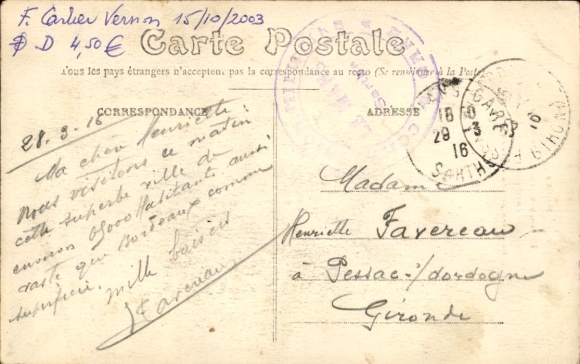 F. Carlier Vernon 15/10/2003
D 4,50€
Carte Postale
Tous les pays étrangers n'acceptent pas la correspondance au recto (Se renseigner à la Poste
CORRESPONDANCE
ADRESSE
28-3-16
Ma chère Henriette:
Nous visitons ce matin
cette superbe ville de
environ Habitants aussi
vaste que Bordeaux comme
superficie.
mille baisers
Favereau
LE MANS
GARE
18 30
29 -3
16
SARTHE
Madame
Henriette Favereau
à Pessac s/dordogne
Gironde